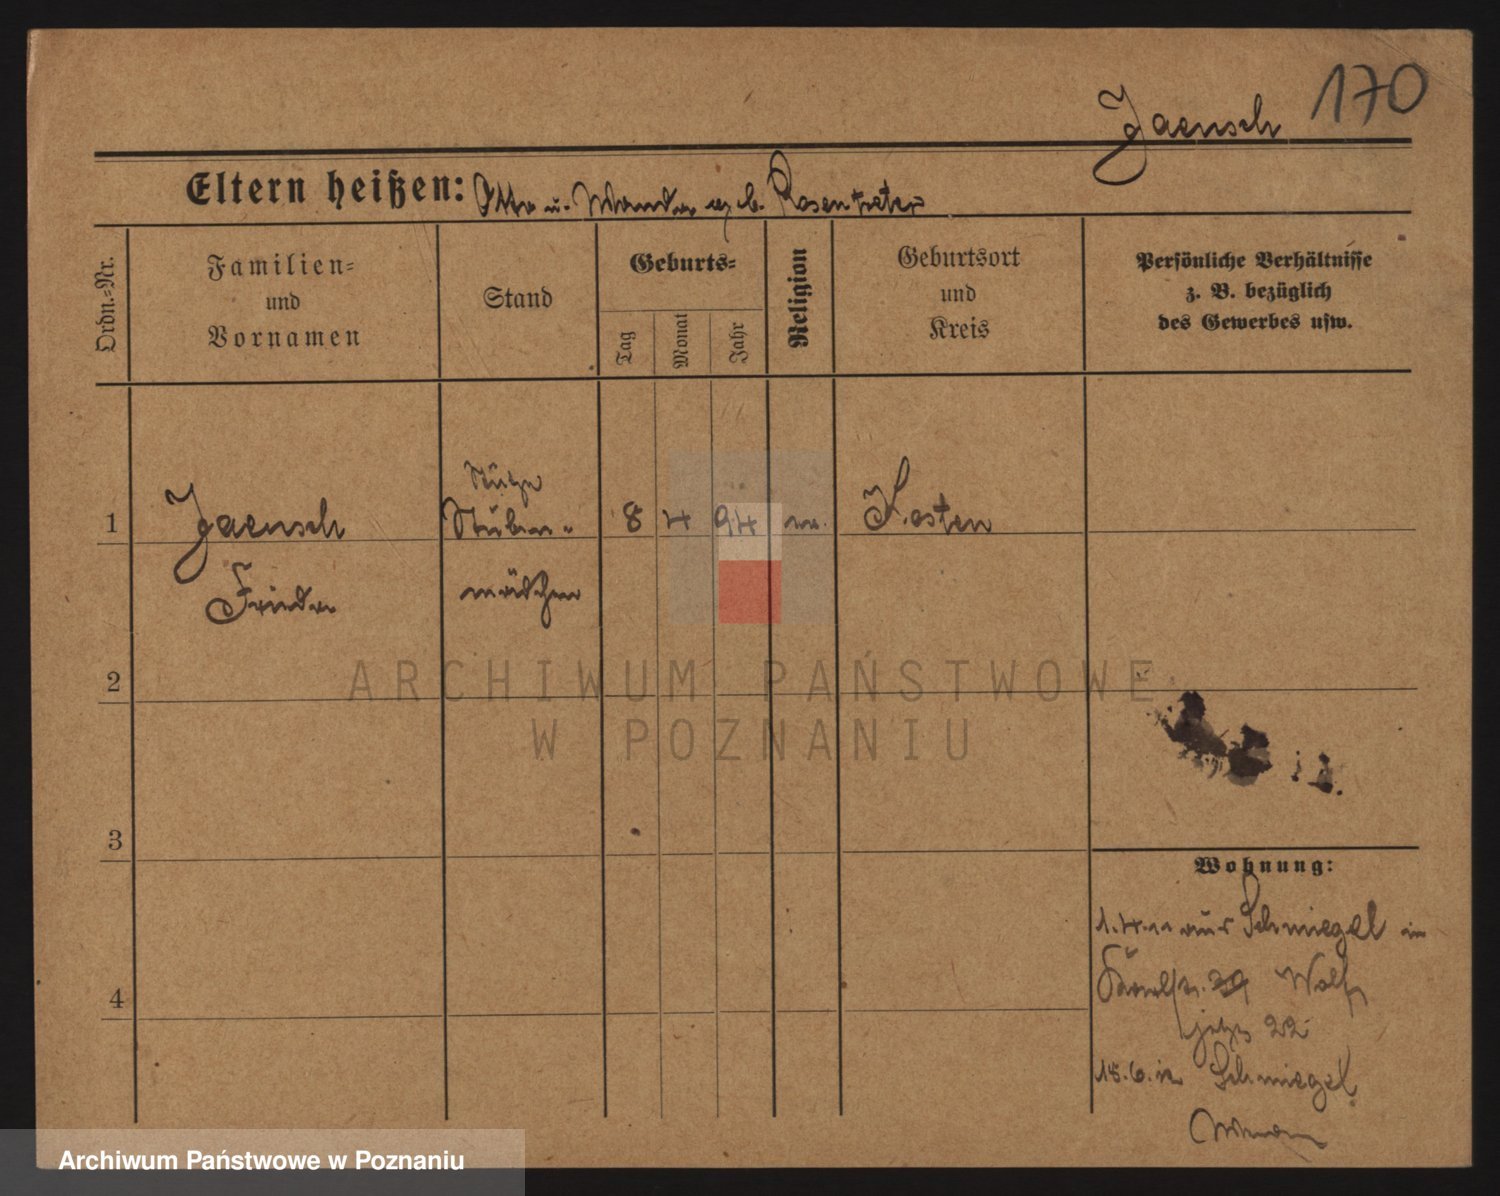 170
Jaensch
Eltern heißen: Otto u. Wanda geb. Rosentreter
Ordn.-Nr.
Familien-
und
Vornamen
Stand
Geburts-
Tag
Monat
Jahr
Religion
Geburtsort
und
Kreis
Persönliche Verhältnisse
z. B. bezüglich
des Gewerbes usw.
Stütze
1 Jaensch Stuben- 8 4 94 Kosten
Frieda mädchen
2
ARCHIWUM PAŃSTWOWE
W POZNANIU
3
Wohnung:
1.4.11 aus Schmiegel in
4
29 Wolf
jetzt 22
18.6.12 Schmiegel
Archiwum Państwowe w Poznaniu